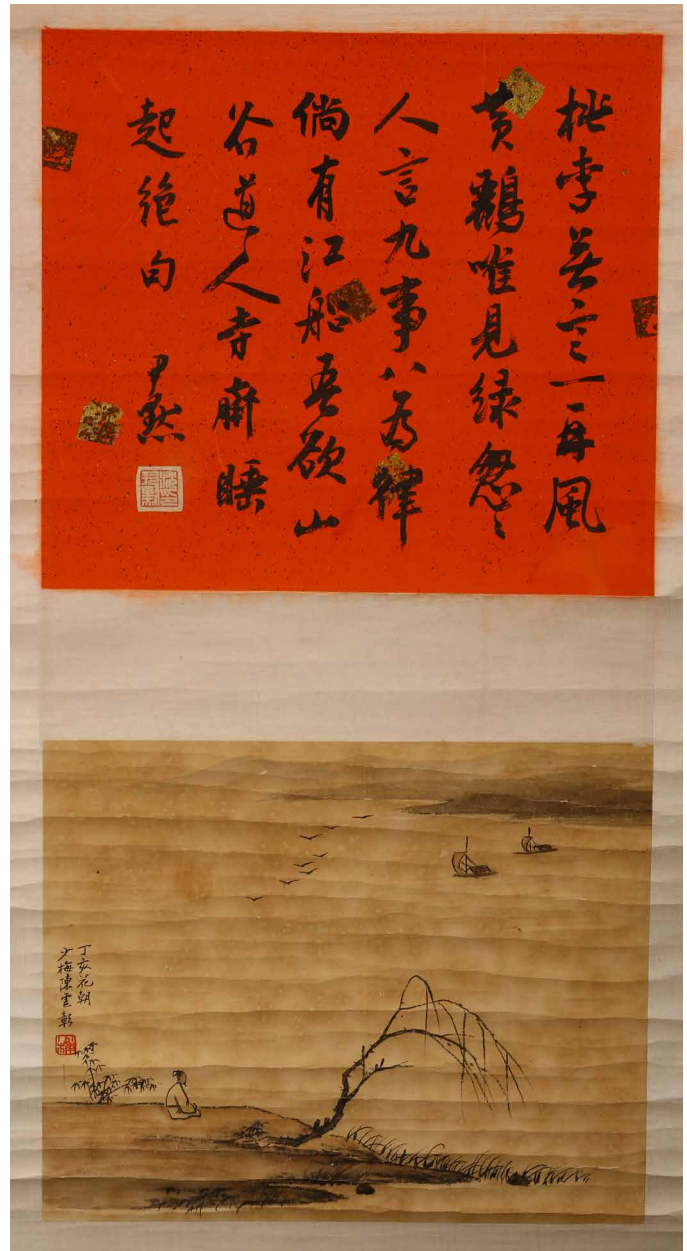 桃李無言一再風
黃鸝唯見綠怱〻
人言九事八為律
倘有江船吾欲山
谷道人寺齋睡
起絕句 尹默
丁亥花朝
少梅陳雲彰